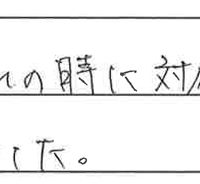 の時に対
した。